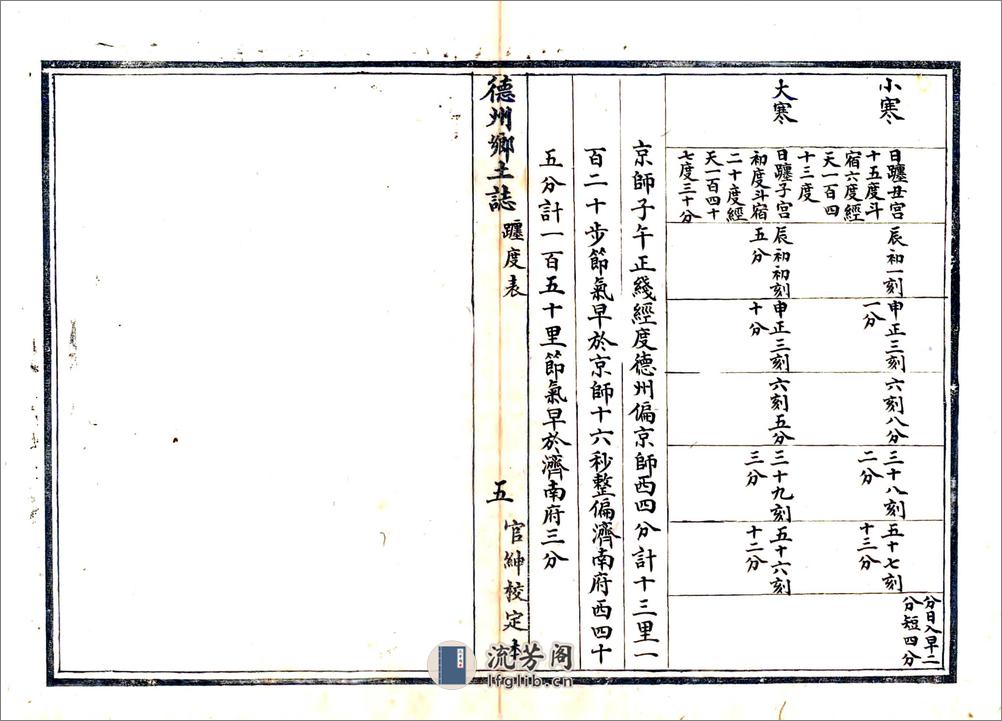 小寒
日躔丑宫
十五度斗
宿六度經
天一百四
十三度
辰初一刻
一分
申正三刻
六刻八分
三十八刻
二分
五十七刻
十三分
分日入早二
分短四分
大寒
日躔子宫
初度斗宿
二十度經
天一百四十
七度三十分
辰初初刻
五分
申正三刻
十分
六刻五分
三十九刻
三分
五十六刻
十二分
京師子午正綫經度德州偏京師西四分計十三里一
百二十步節氣早於京師十六秒整偏濟南府西四十
五分計一百五十里節氣早於濟南府三分
德州鄉土誌 躔度表 五 官紳校定本
流芳阁
lfglib.cn